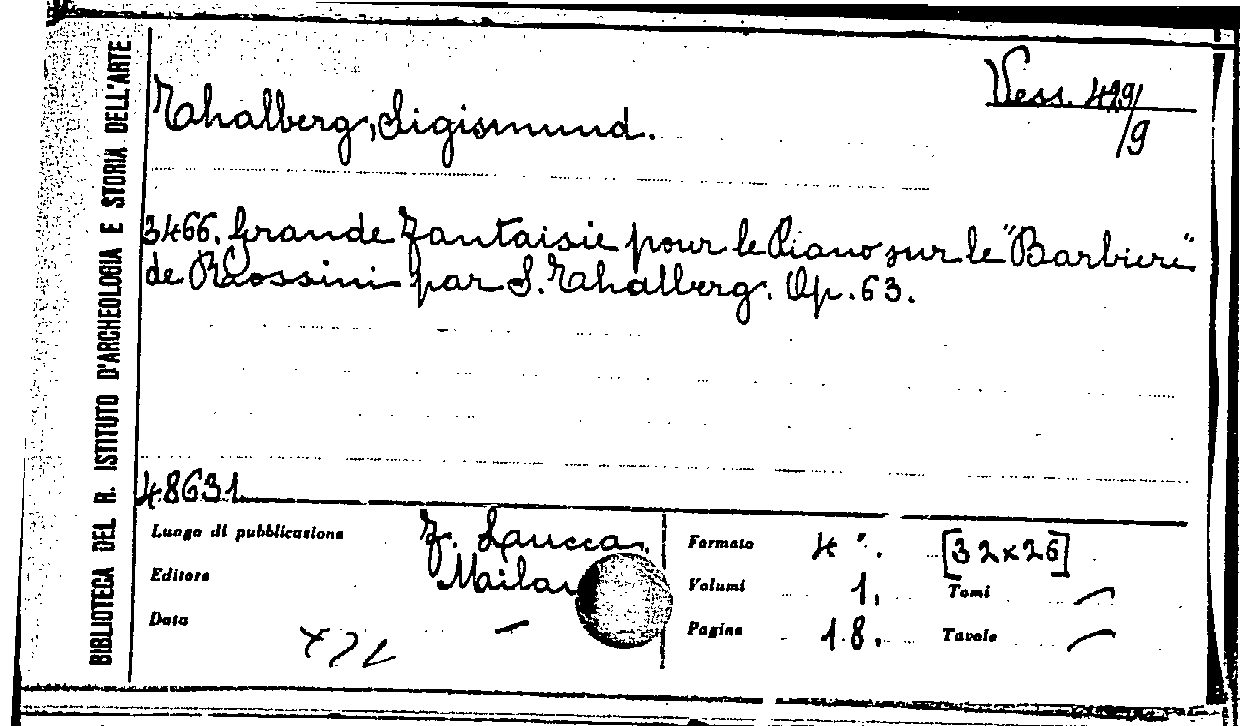 BIBLIOTECA DEL R. ISTITUTO D'ARCHEOLOGIA E STORIA DELL'ARTE
Vess. 429/
/9
Thalberg, Sigismund.
3466. Grande Fantaisie pour le Piano sur le "Barbieri"
de Rossini par S. Thalberg. Op. 63.
48631
Luogo di pubblicazione F. Lucca.
Editore Milan
Data —
Formato 4°. [32x26]
Volumi 1. Tomi —
Pagine 18. Tavole —